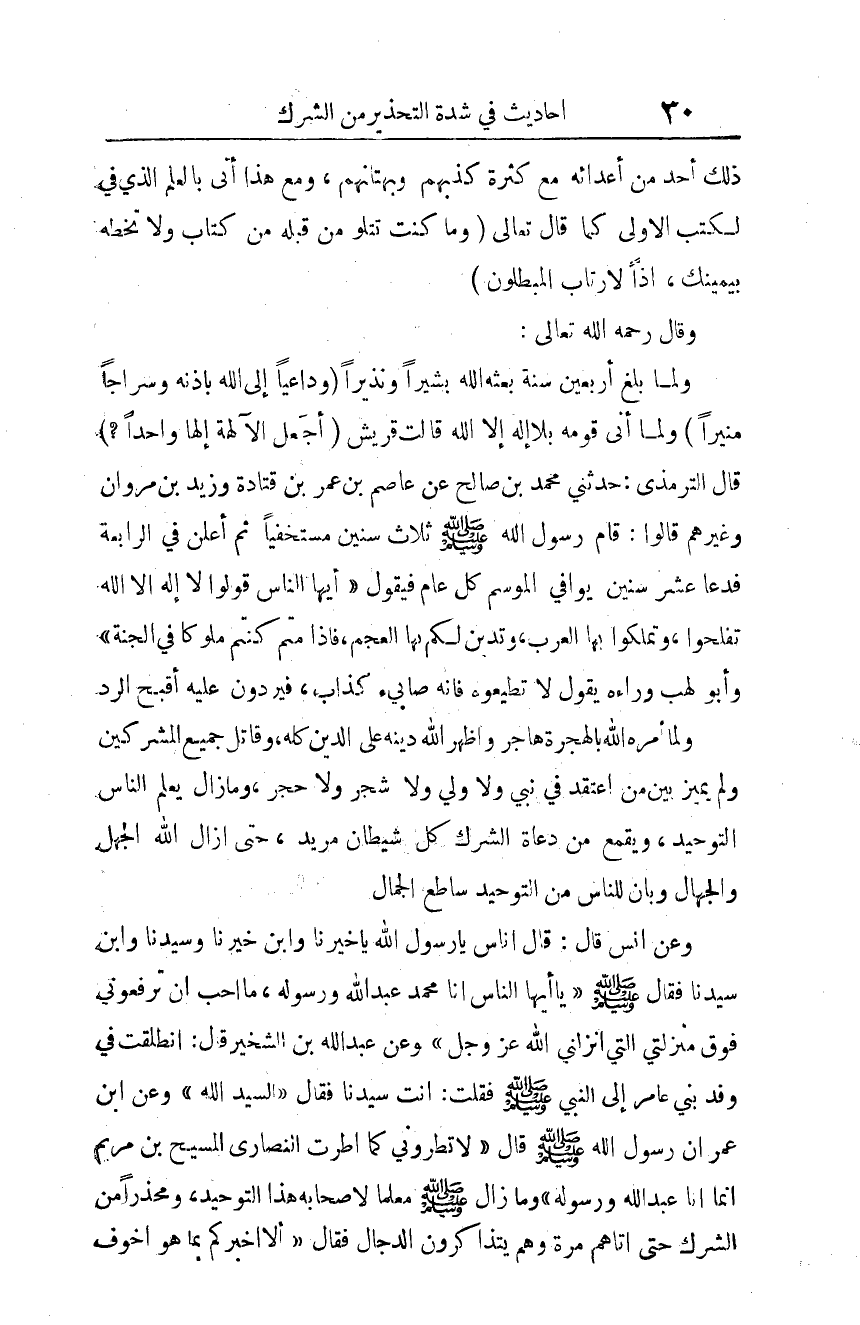 ٣٠ احاديث في شدة التحذير من الشرك
ذلك أحد من أعدائه مع كثرة كذبهم وبهتانهم ، ومع هذا أتى بالعلم الذي في
لـكتب الاولى كما قال تعالى ( وما كنت تتلو من قبله من كتاب ولا تخطه
بيمينك ، اذاً لارتاب المبطلون )
وقال رحمه الله تعالى :
ولمـا بلغ أربعين سنة بعثه الله بشيراً ونذيراً (وداعياً إلى الله باذنه وسراجاً
منيراً ) ولمـا أتى قومه بلا إله إلا الله قالت قريش ( أجعل الآلهة إلها واحداً ؟)
قال الترمذى : حدثني محمد بن صالح عن عاصم بن عمر بن قتادة وزيد بن مروان
وغيرهم قالوا : قام رسول الله ﷺ ثلاث سنين مستخفياً ثم أعلن في الرابعة
فدعا عشر سنين يوافي الموسم كل عام فيقول « أيها الناس قولوا لا إله الا الله
تفلحوا ، وتملكوا بها العرب، وتدين لـكم بها العجم، فاذا متم كنتم ملوكا في الجنة»
وأبو لهب وراءه يقول لا تطيعوه فانه صابيء كذاب، ، فيردون عليه أقبح الرد
ولما أمره الله بالهجرة هاجر واظهر الله دينه على الدين كله، وقاتل جميع المشركين
ولم يميز بين من اعتقد في نبي ولا ولي ولا شجر ولا حجر ، ومازال يعلم الناس
التوحيد ، ويقمع من دعاة الشرك كل شيطان مريد ، حتى ازال الله الجهل
والجهال وبان للناس من التوحيد ساطع الجمال
وعن انس قال : قال اناس يارسول الله ياخيرنا وابن خيرنا وسيدنا وابن
سيدنا فقال ﷺ « ياأيها الناس انا محمد عبدالله ورسوله ، مااحب ان ترفعوني
فوق منزلتي التي انزاني الله عز وجل » وعن عبدالله بن الشخير قال: انطلقت في
وفد بني عامر إلى النبي ﷺ فقلت: انت سيدنا فقال «السيد الله » وعن ابن
عمر ان رسول الله ﷺ قال « لاتطروني كما اطرت النصارى المسيح بن مريم
انما انا عبدالله ورسوله» وما زال ﷺ معلما لاصحابه هذا التوحيد، ومحذراً من
الشرك حتى اتاهم مرة وهم يتذاكرون الدجال فقال « ألا اخبركم بما هو اخوف